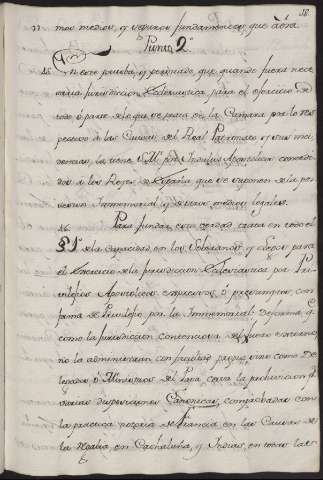 18.
mos medios, y seguros fundamentos, que ahora
Punto 2º
En este prueba, y persuado, que quando fuera nece
saria Jurisdiccion Eclesiastica para el exercicio de
todo ó parte de lo que se trata en la Camara por lo res
pectivo á las Causas del Real Patronato, y sus inci
dencias, la tiene V. M. por Indultos Apostolicos concedi
dos á los Reyes de España que se suponen de la po
sesion Immemorial, y de otros medios legales.
Para fundar esta verdad trata en todo el
§ 1º de la capacidad en los Soberanos, y Legos para
el Exercicio de la Jurisdiccion Eclesiastica por Pri
vilegios Apostolicos expresos, ó presuntos, con
forma de Privilegio por la Immemorial: De forma, q
como la Jurisdiccion contenciosa del fuero externo,
no la administran con facultad propia, sino como De
legados, ó Ministros del Papa, cesa la prohivicion de
varias disposiciones Canonicas, comprobadas con
la practica notoria de Francia en las Causas de
la Regalia, en Cathaluña, y Indias, en todas las